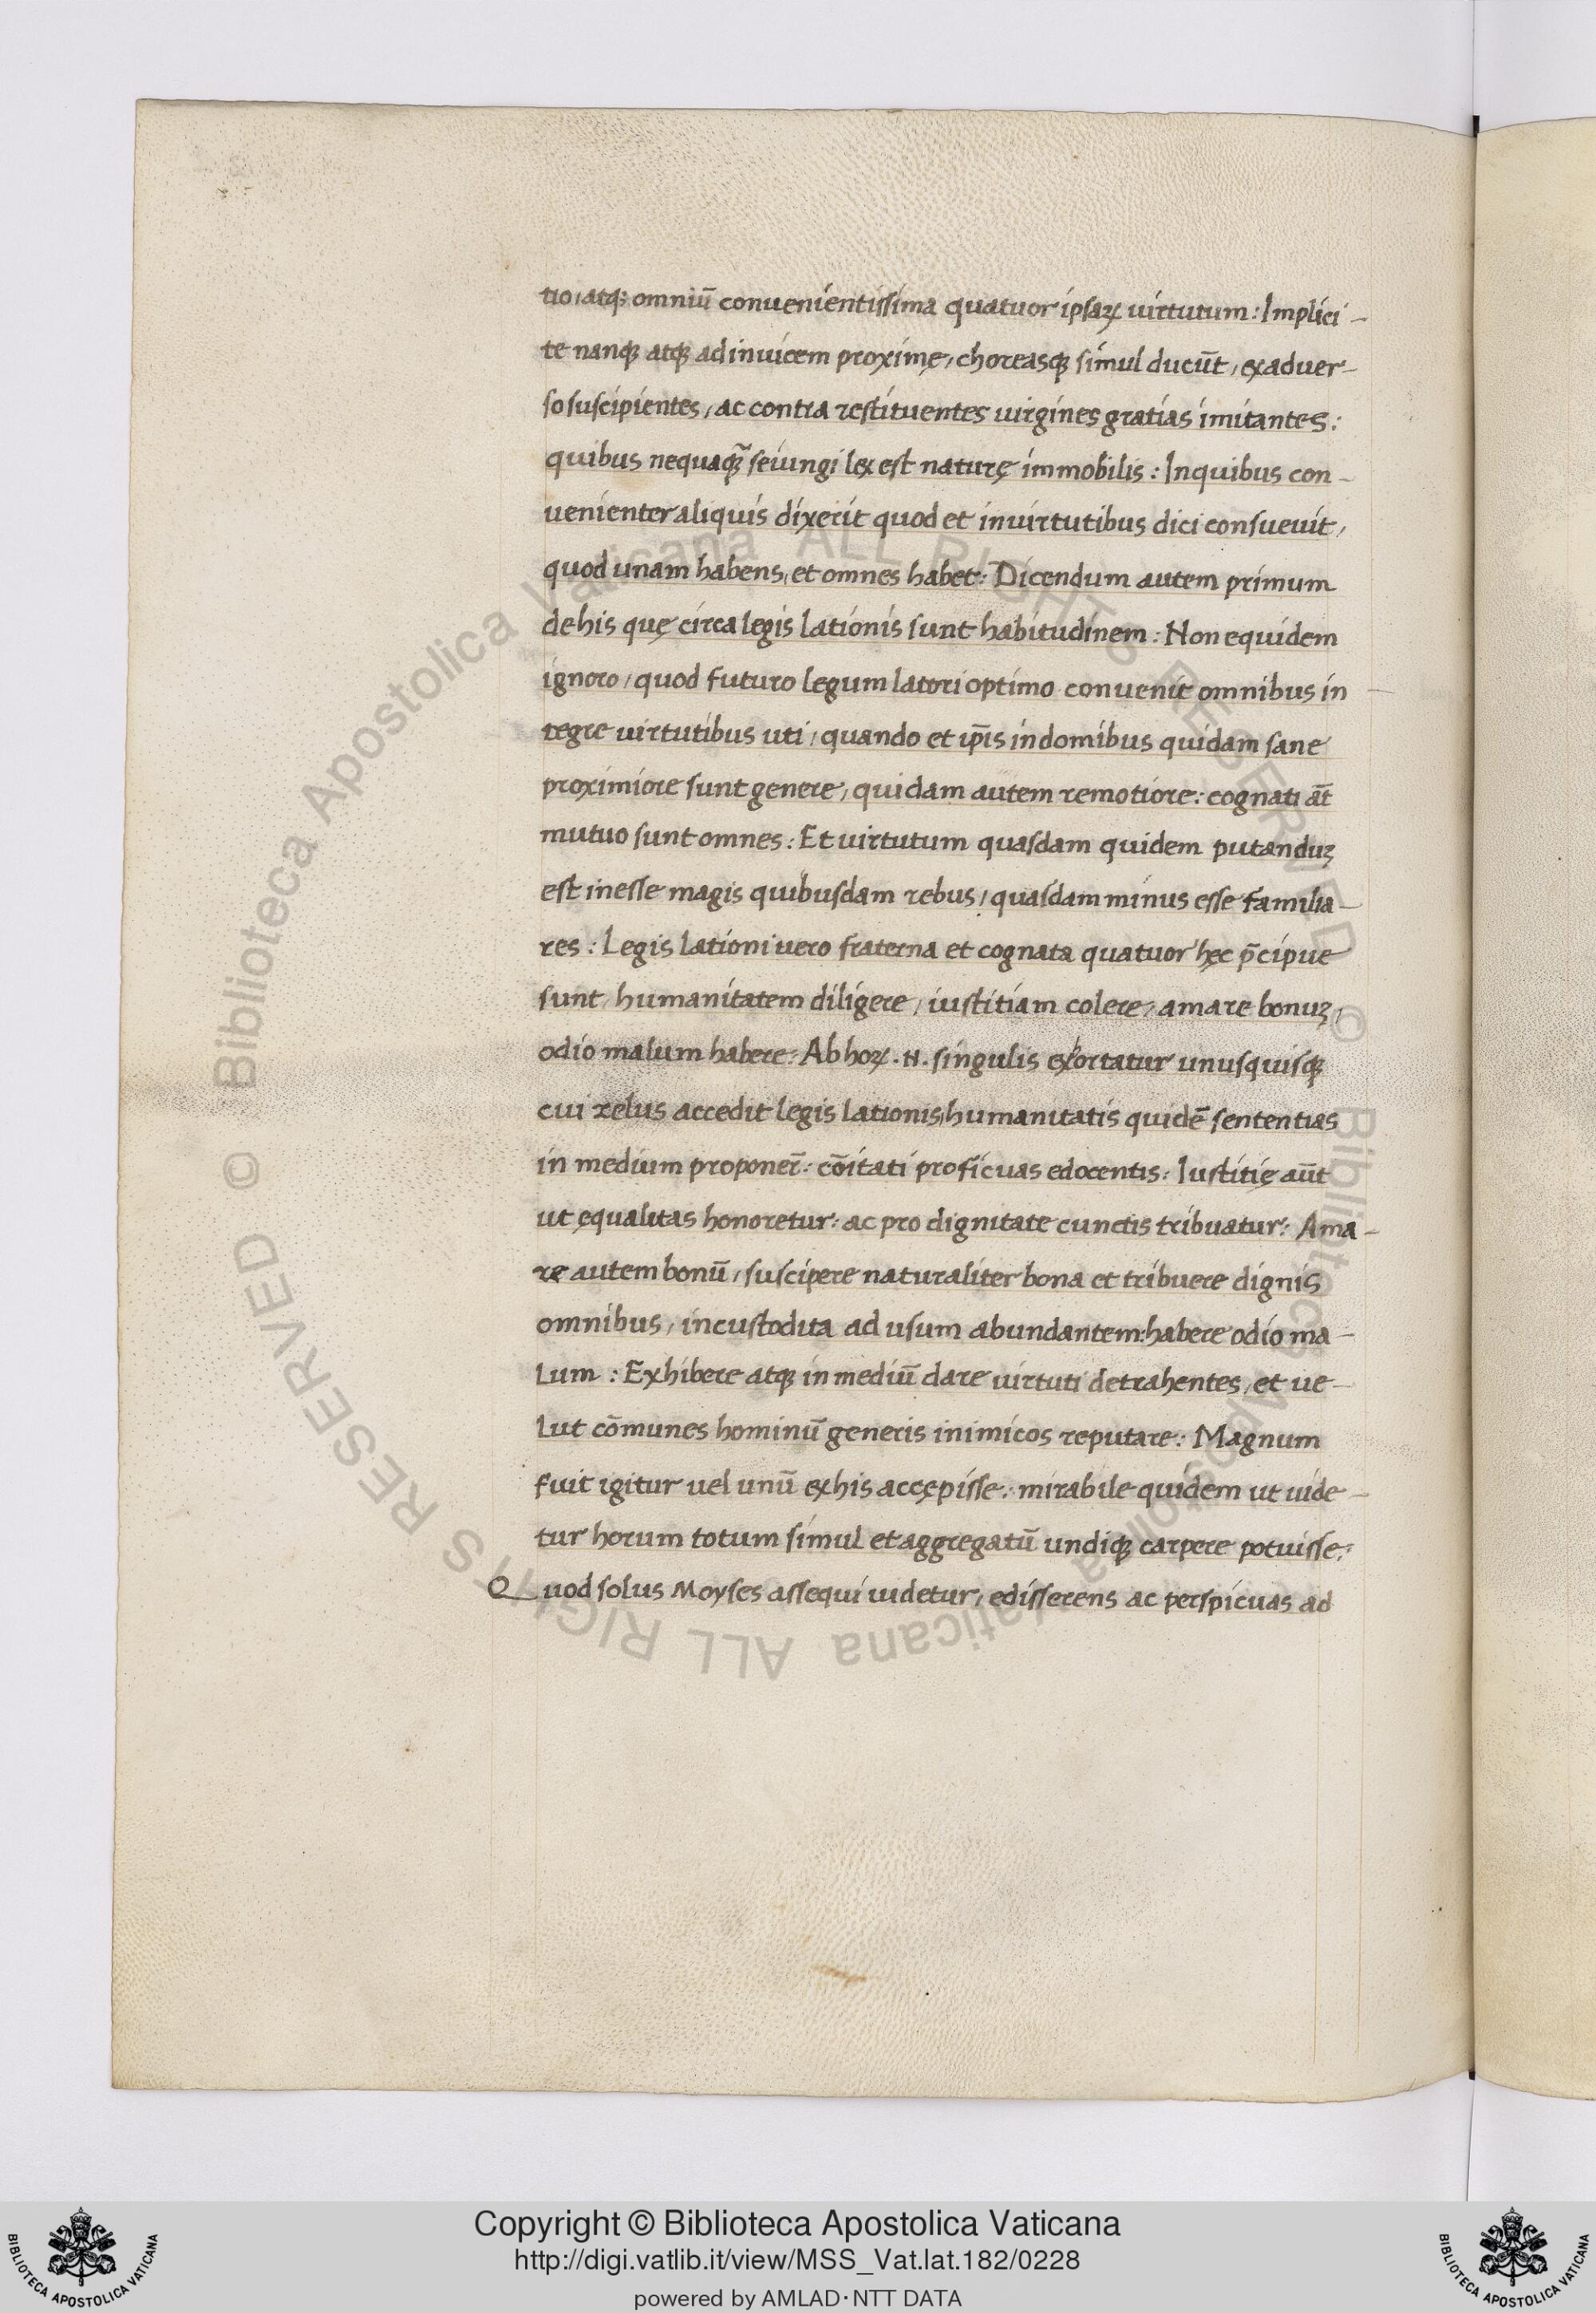 tio, atqꝫ omniū convenientissima quatuor ipsaꝝ virtutum: Implici-
te nanqꝫ atqꝫ ad invicem proximę, choreasqꝫ simul ducūt, ex adver-
so suscipientes, ac contra restituentes virgines gratias imitantes:
quibus nequaqꝫ̃ seiungi lex est naturę immobilis: In quibus con-
venienter aliquis dixerit quod et in virtutibus dici consuevit,
quod unam habens, et omnes habet: Dicendum autem primum
de his quę circa legis lationis sunt habitudinem: Non equidem
ignoro, quod futuro legum latori optimo convenit omnibus in
tegre virtutibus uti, quando et ip̄is in domibus quidam sane
proximiore sunt genere, quidam autem remotiore: cognati āt
mutuo sunt omnes: Et virtutum quasdam quidem putanduꝫ
est inesse magis quibusdam rebus, quasdam minus esse familia-
res: Legis lationi vero fraterna et cognata quatuor hęc p̄cipue
sunt, humanitatem diligere, iustitiam colere, amare bonuꝫ,
odio malum habere: Ab hoꝝ .N. singulis exhortatur unusquisqꝫ
cui zelus accedit legis lationis, humanitatis quidē sententias
in medium proponer̄: cōitati proficuas edocentis: Iustitię aūt
ut ęqualitas honoretur: ac pro dignitate cunctis tribuatur: Ama-
re autem bonū, suscipere naturaliter bona et tribuere dignis
omnibus, incustodita ad usum abundantem: habere odio ma-
lum: Exhibere atqꝫ in mediū dare virtuti detrahentes, et ve-
lut cōmunes hominū generis inimicos reputare: Magnum
fuit igitur vel unū ex his accępisse: mirabile quidem ut vide-
tur horum totum simul et aggregatū undiqꝫ carpere potuisse:
Quod solus Moyses assequi videtur, edisserens ac perspicuas ad
© Biblioteca Apostolica Vaticana ALL RIGHTS RESERVED
© Biblioteca Apostolica Vaticana ALL RIGHTS RESERVED
Copyright © Biblioteca Apostolica Vaticana
http://digi.vatlib.it/view/MSS_Vat.lat.182/0228
powered by AMLAD·NTT DATA
BIBLIOTECA APOSTOLICA VATICANA
BIBLIOTECA APOSTOLICA VATICANA